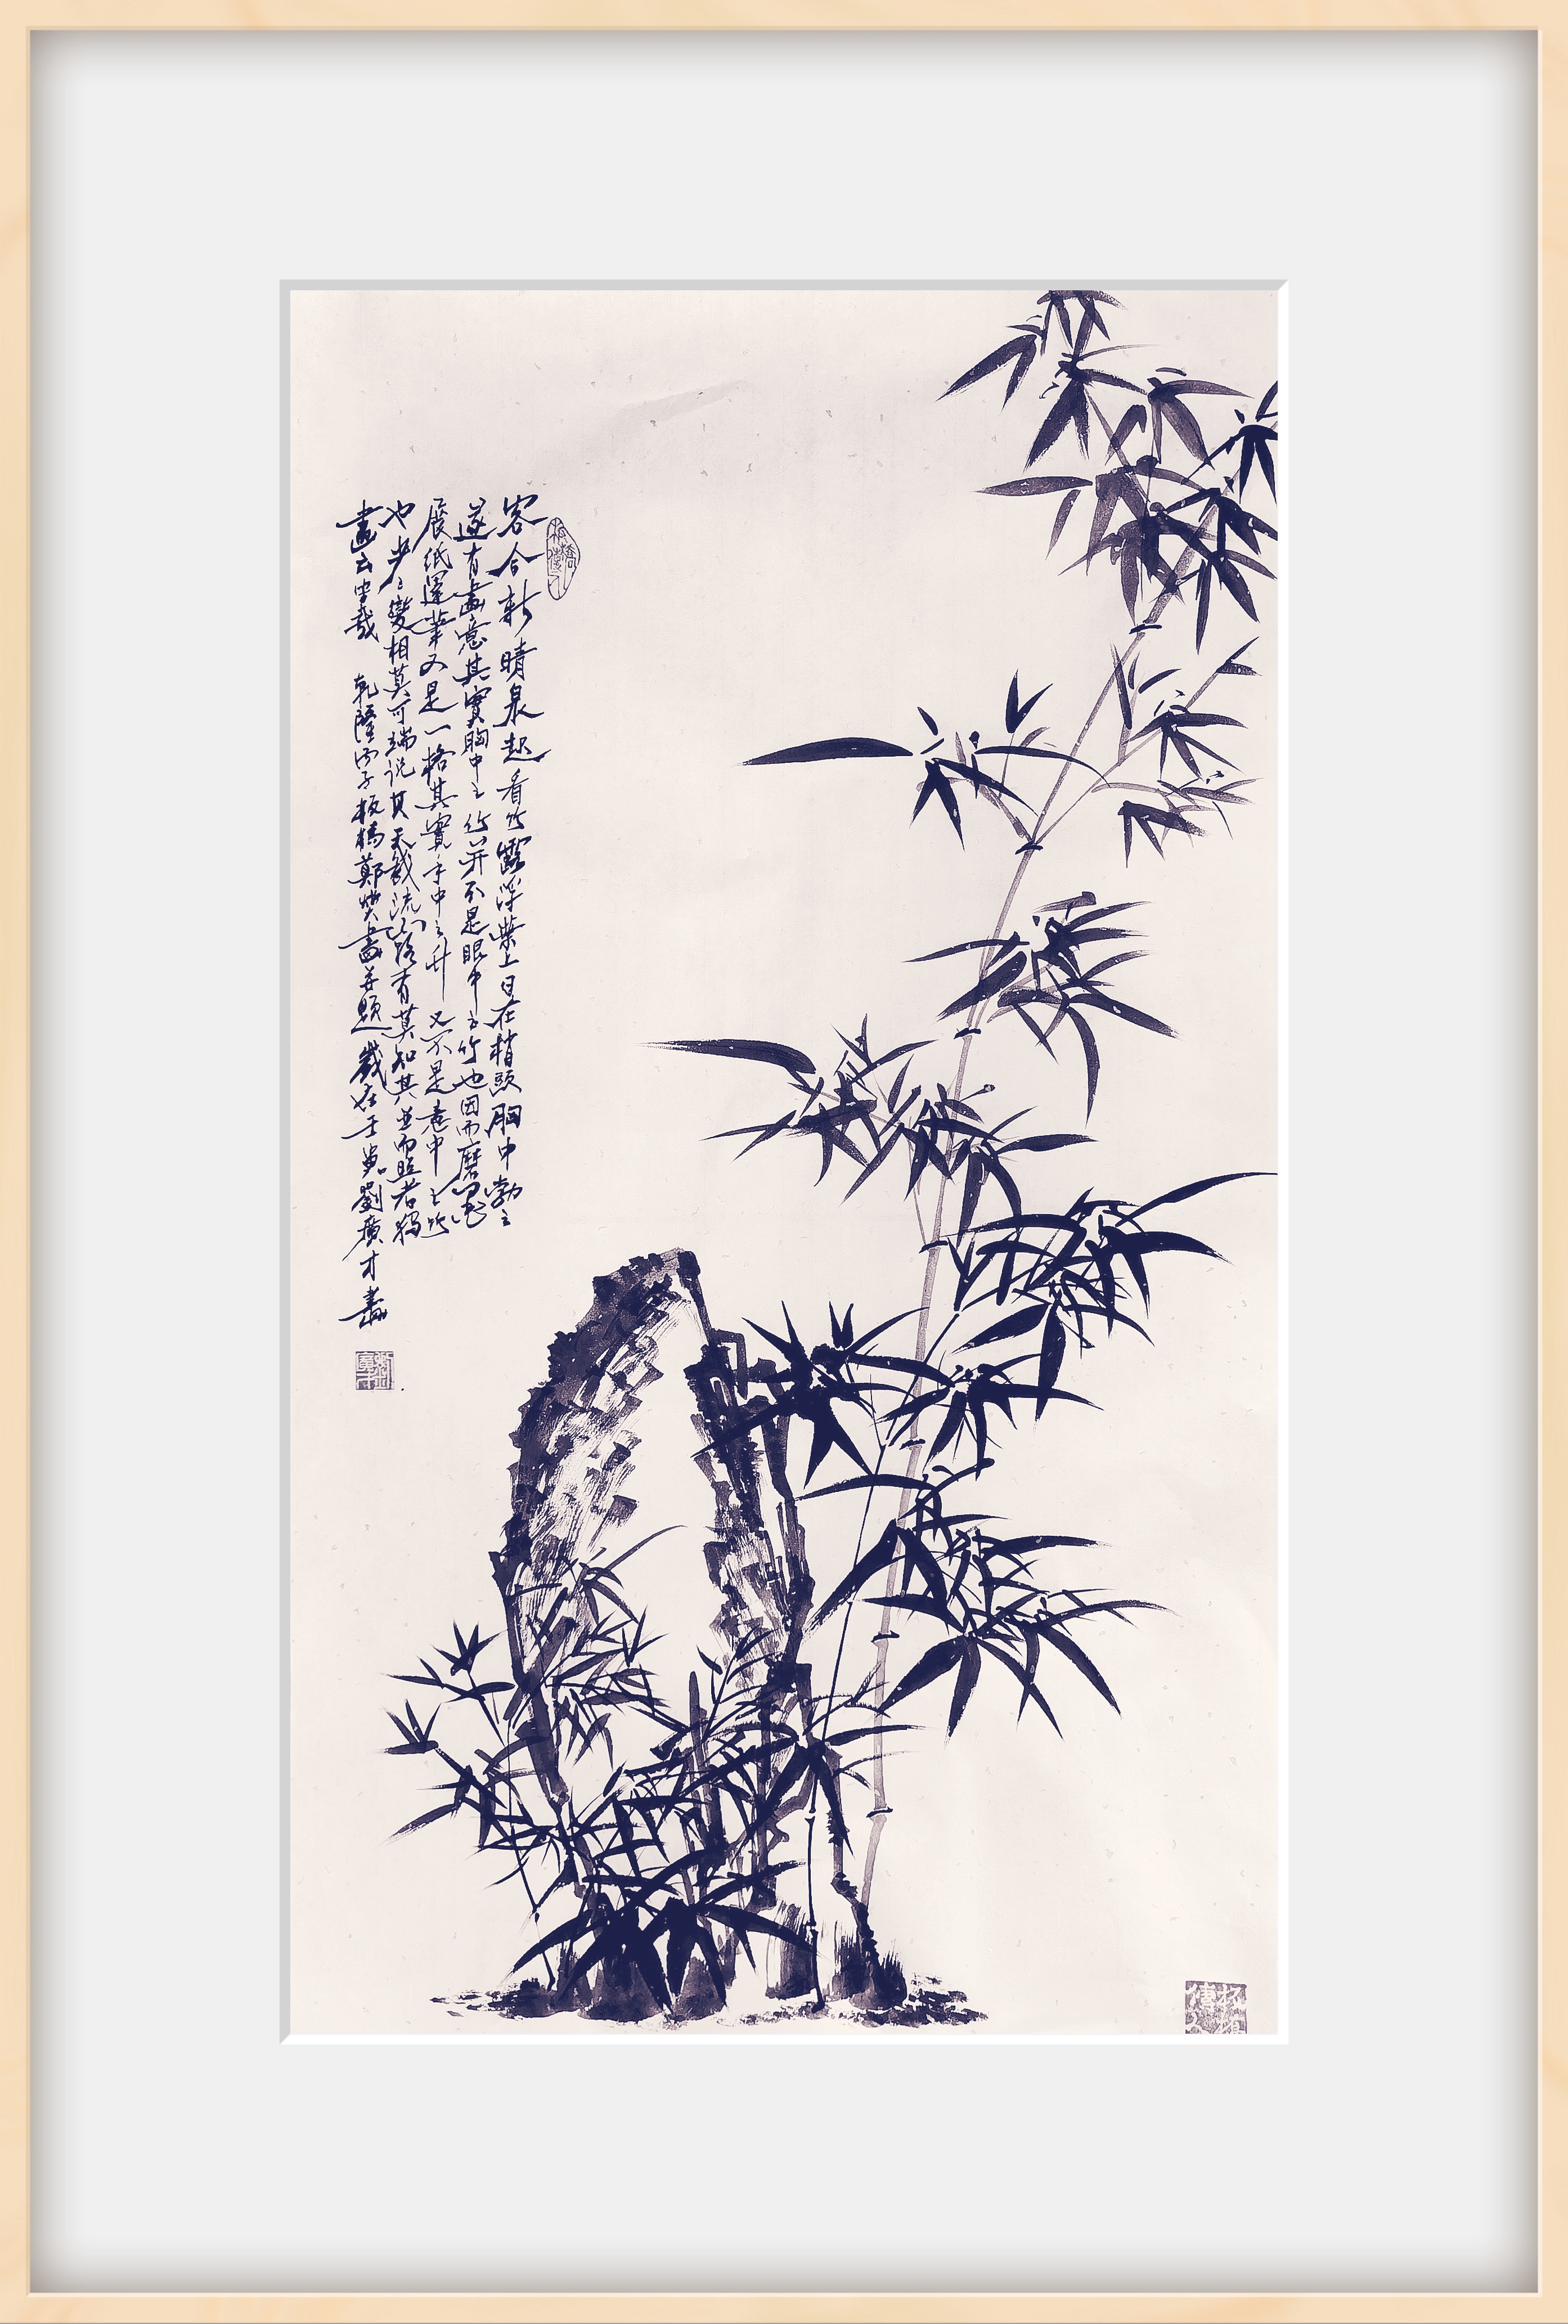 客合新晴晨起看竹露浮葉上日在梢頭胸中勃々
遂有畫意其實胸中之竹并不是眼中之竹也因而磨墨
展紙運筆又是一格其實手中之竹又不是意中之竹
也步々變相莫可端倪其天機流露有莫知其然而然者獨
畫云乎哉 乾隆丙子板橋鄭燮畫并題 歲在壬寅劉廣才畫
劉廣才